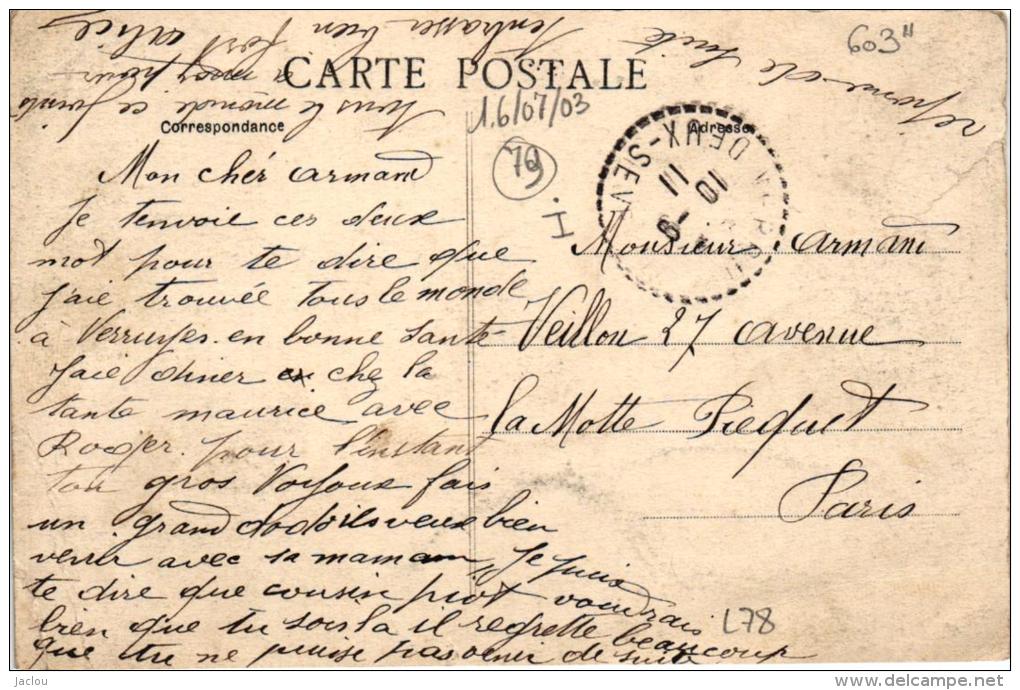 603"
CARTE POSTALE
16/07/03
Correspondance
Adresse
79
I
DEUX-SEV
10
11
9
Mon chér armand
Je t'envoie ces deux
mot pour te dire que
j'aie trouvée tous le monde
à Verruyes en bonne santé
j'aie diner chez la
tante maurice avec
Roger. pour l'instant
ton gros Voyoux fais
un grand dodo ils veux bien
venir avec sa maman Je puis
te dire que cousin piot voudrais
bien que tu sois la il regrette beaucoup
que tu ne puisse pas venir de suite
Tous le monde ce joint
a moi pour
t'embrasser bien fort
alice
de suite
Monsieur Armand
Veillon 27 avenue
La Motte Piequet
Paris
L78
jaclou
www.delcampe.net